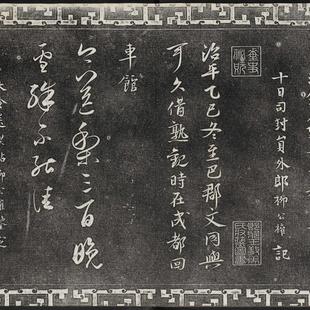 十日司封員外郎柳公權記
治平乙巳冬至巴郡文同與
可久借熟觀時在成都回
車館
今送梨三百晚
雪殊不能佳